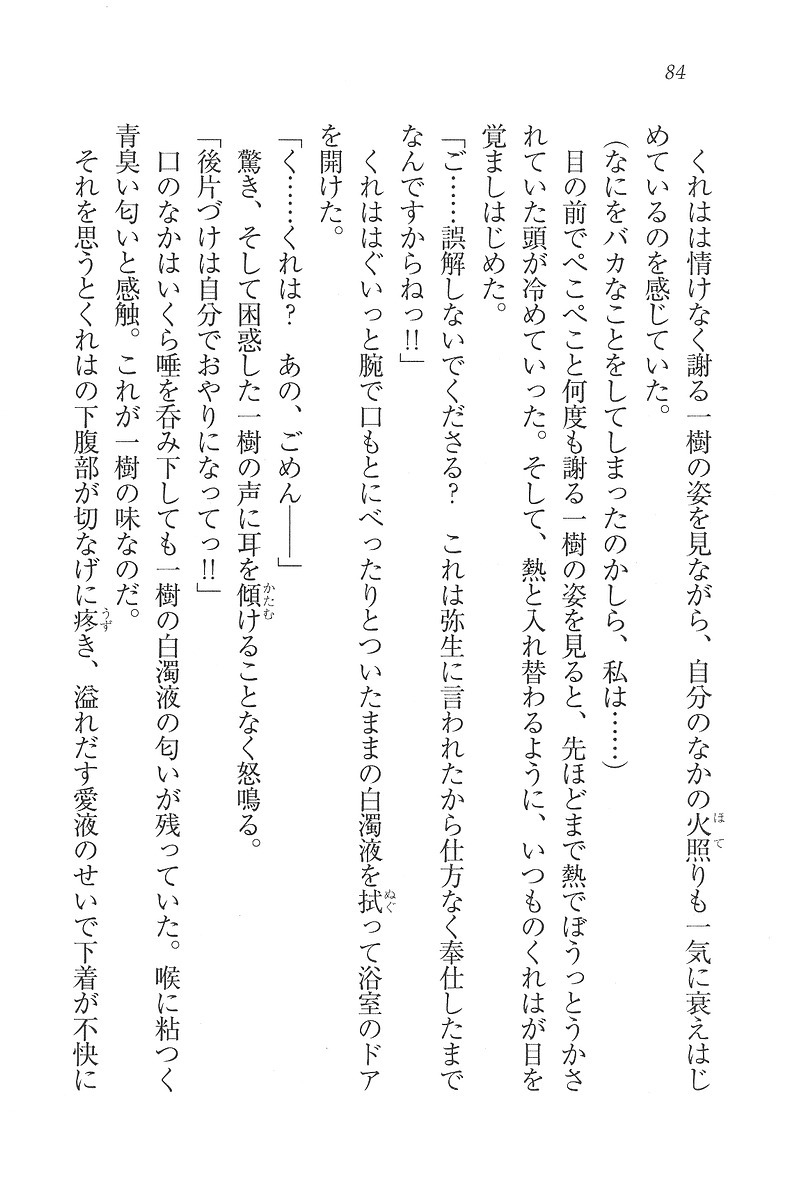 84
くれはは情けなく謝る一樹の姿を見ながら、自分のなかの火照りも一気に衰えはじ
めているのを感じていた。
(なにをバカなことをしてしまったのかしら、私は……)
目の前でぺこぺこと何度も謝る一樹の姿を見ると、先ほどまで熱でぼうっとうかさ
れていた頭が冷めていった。そして、熱と入れ替わるように、いつものくれはが目を
覚ましはじめた。
「ご……誤解しないでくださる? これは弥生に言われたから仕方なく奉仕したまで
なんですからねっ!!」
くれははぐいっと腕で口もとにべったりとついたままの白濁液を拭って浴室のドア
を開けた。
「く……くれは? あの、ごめん――」
驚き、そして困惑した一樹の声に耳を傾けることなく怒鳴る。
「後片づけは自分でおやりになってっ!!」
口のなかはいくら唾を呑み下しても一樹の白濁液の匂いが残っていた。喉に粘つく
青臭い匂いと感触。これが一樹の味なのだ。
それを思うとくれはの下腹部が切なげに疼き、溢れだす愛液のせいで下着が不快に